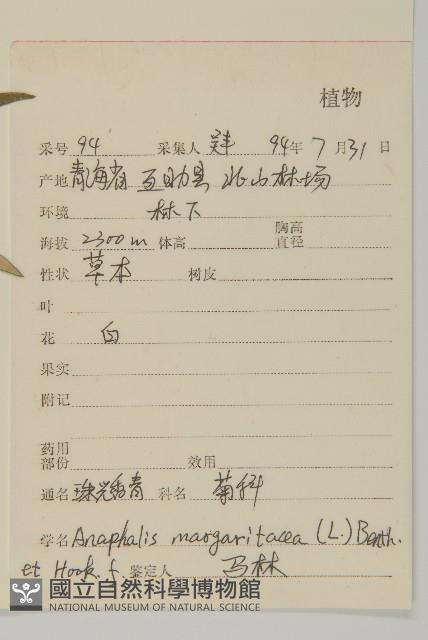 植物
采号 94 采集人 94年 7月31日
产地 青海省 互助县 北山林场
环境 林下
胸高
海拔 2300m 体高 直径
性状 草本 树皮
叶
花 白
果实
附记
药用
部份 效用
通名 珠光香青 科名 菊科
学名 Anaphalis margaritacea (L.) Benth.
et Hook. f. 鉴定人 马林
國立自然科學博物館
NATIONAL MUSEUM OF NATURAL SCIENCE